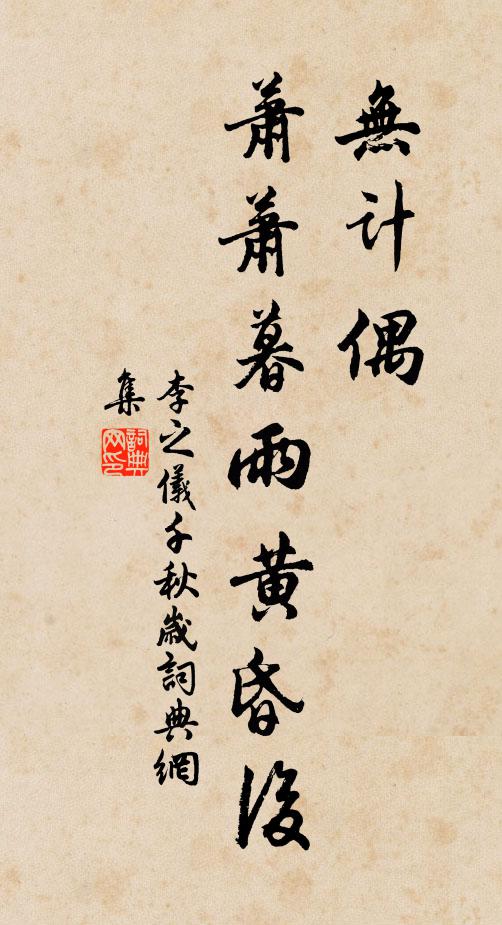 無計偶
蕭蕭暮雨黄昏後
李之儀千秋歲詞典網
集
詞典
网印